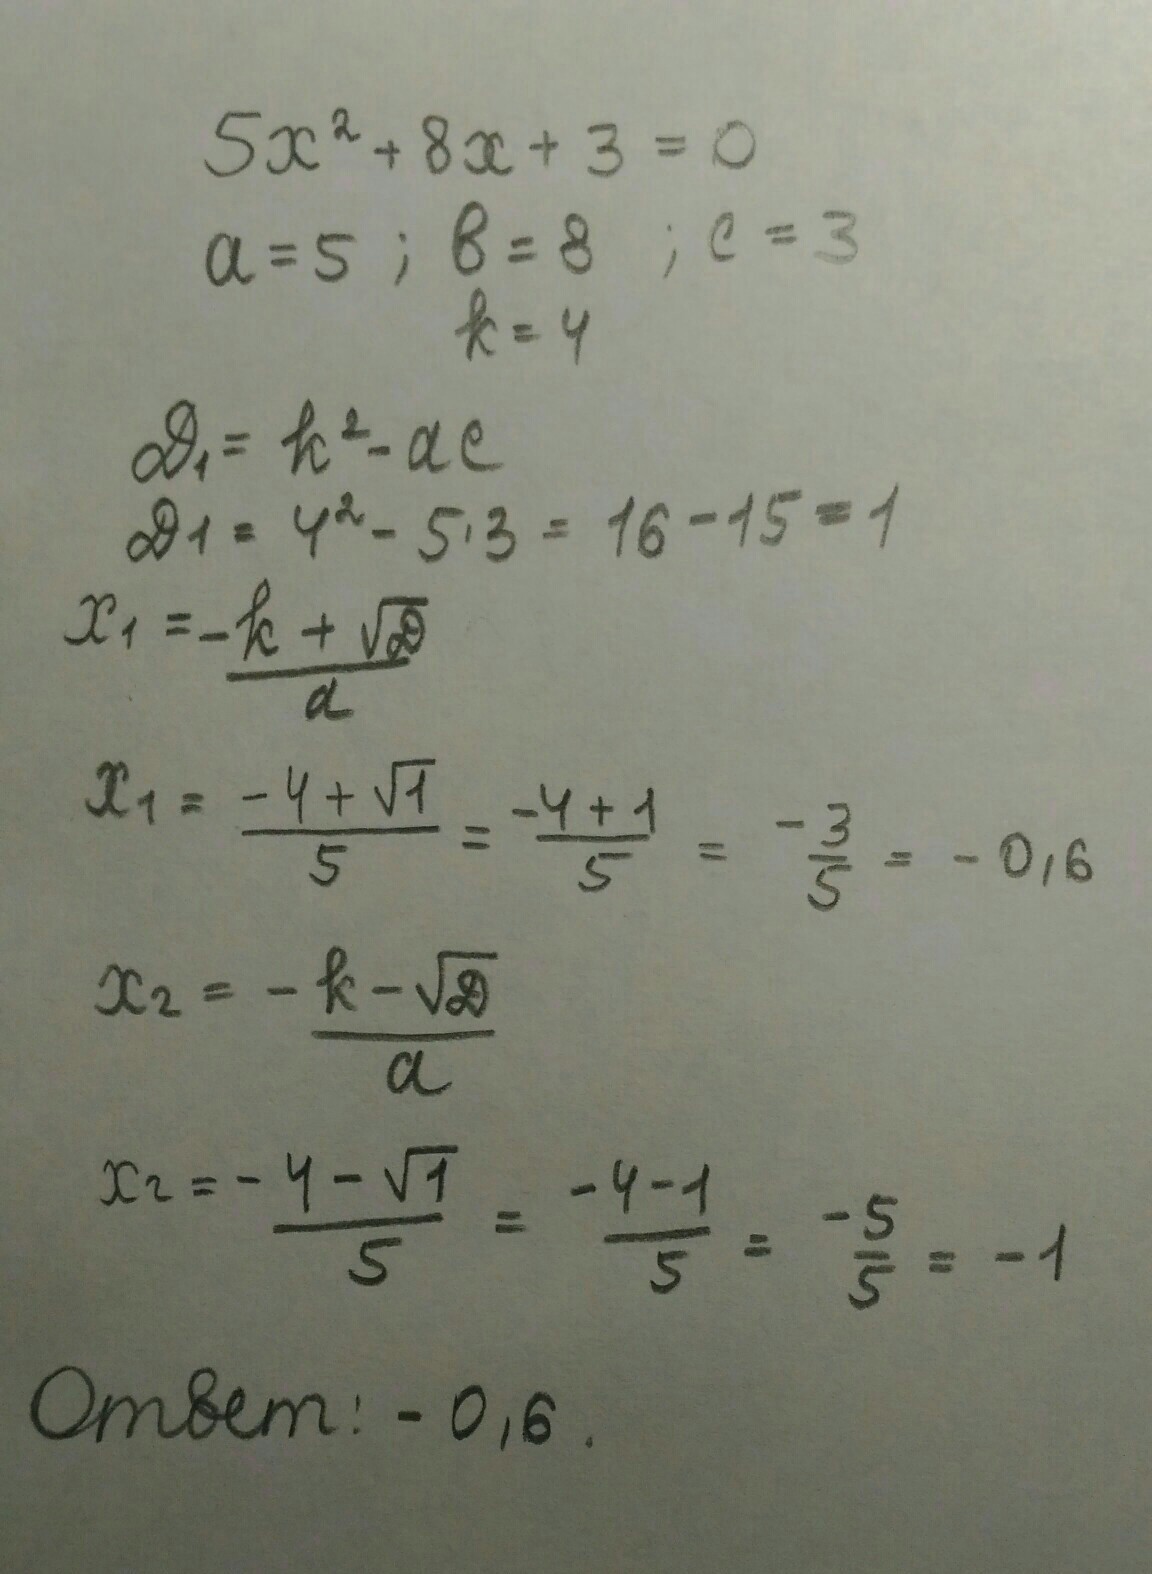 5x² + 8x + 3 = 0
a = 5 ; в = 8 ; c = 3
k = 4
D₁ = k² - ac
D1 = 4² - 5·3 = 16 - 15 = 1
x₁ = -k + √D / a
x₁ = -4 + √1 / 5 = -4 + 1 / 5 = -3/5 = -0,6
x₂ = -k - √D / a
x₂ = -4 - √1 / 5 = -4 - 1 / 5 = -5/5 = -1
Ответ: -0,6.